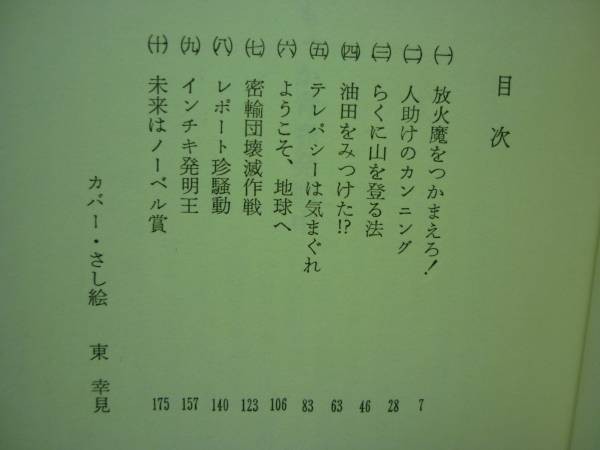 目次
㈠ 放火魔をつかまえろ! 7
㈡ 人助けのカンニング 28
㈢ らくに山を登る法 46
㈣ 油田をみつけた!? 63
㈤ テレパシーは気まぐれ 83
㈥ ようこそ、地球へ 106
㈦ 密輸団壊滅作戦 123
㈧ レポート珍騒動 140
㈨ インチキ発明王 157
㈩ 未来はノーベル賞 175
カバー・さし絵 東 幸見